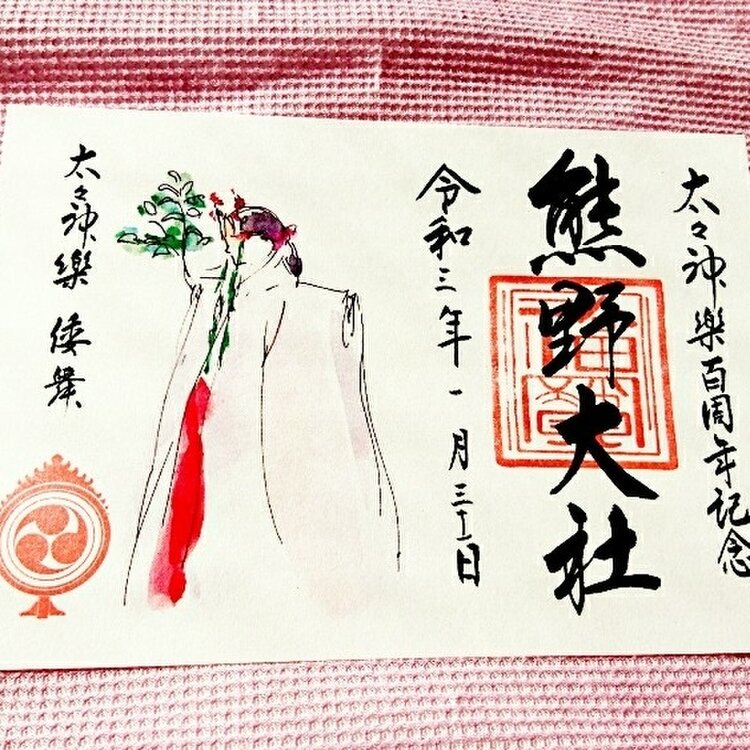 太々神樂百周年記念
熊野大社
令和三年一月三十一日
太々神樂 倭舞